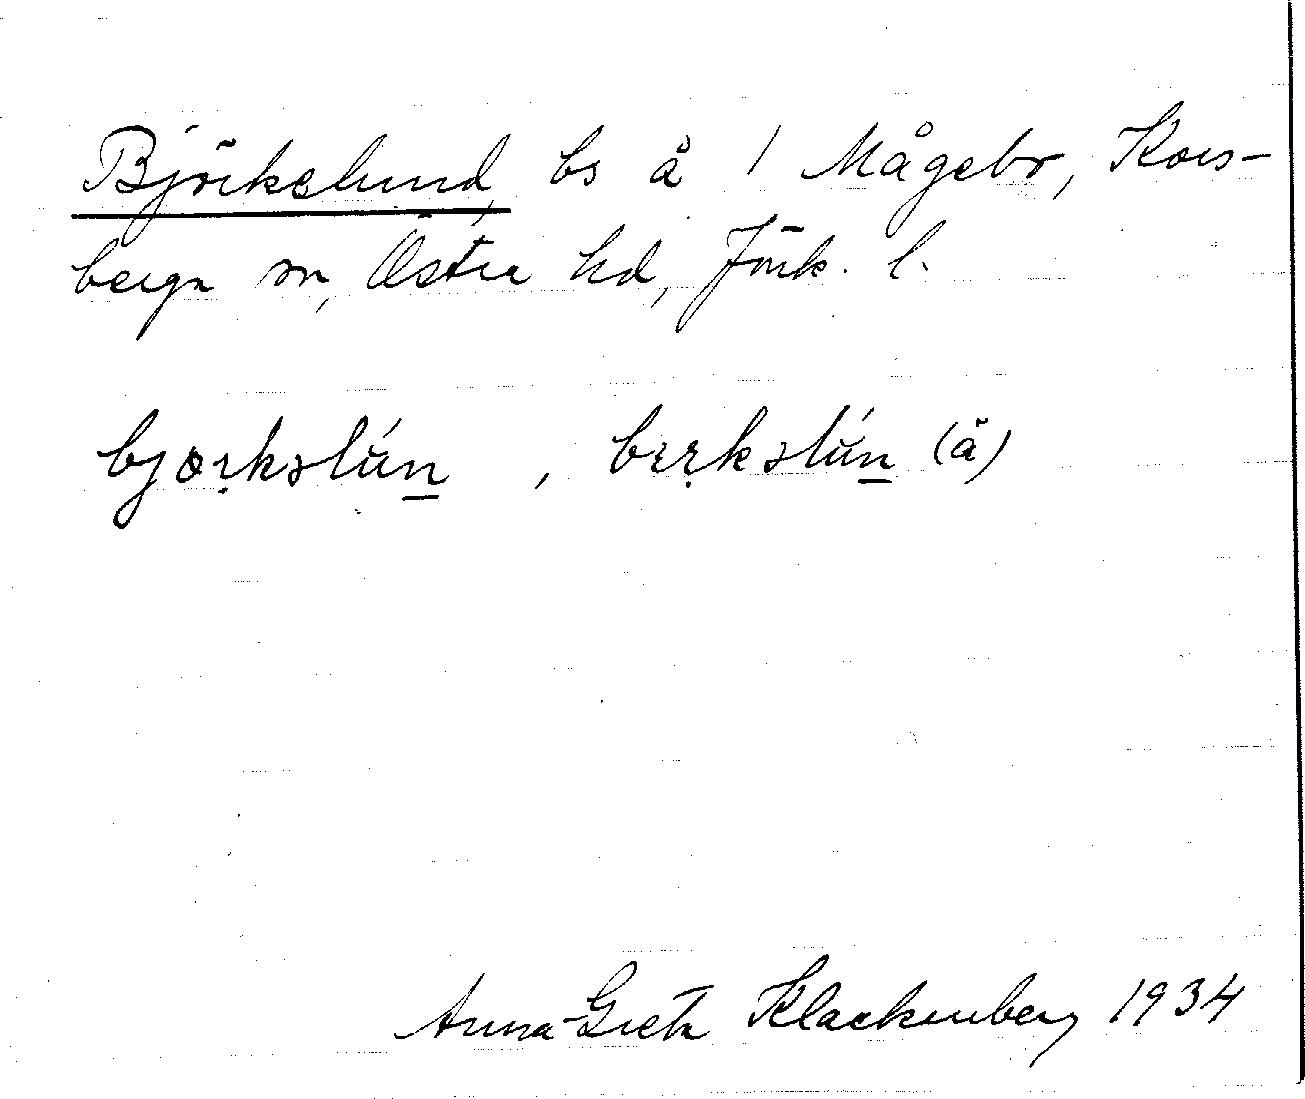 Björkelund, bs å 1 Mågebo, Kors-
berga sn, Östra hd, Jönk. l.
bjœrkəlún , bırkəlún (å)
Anna-Greta Klackenberg 1934